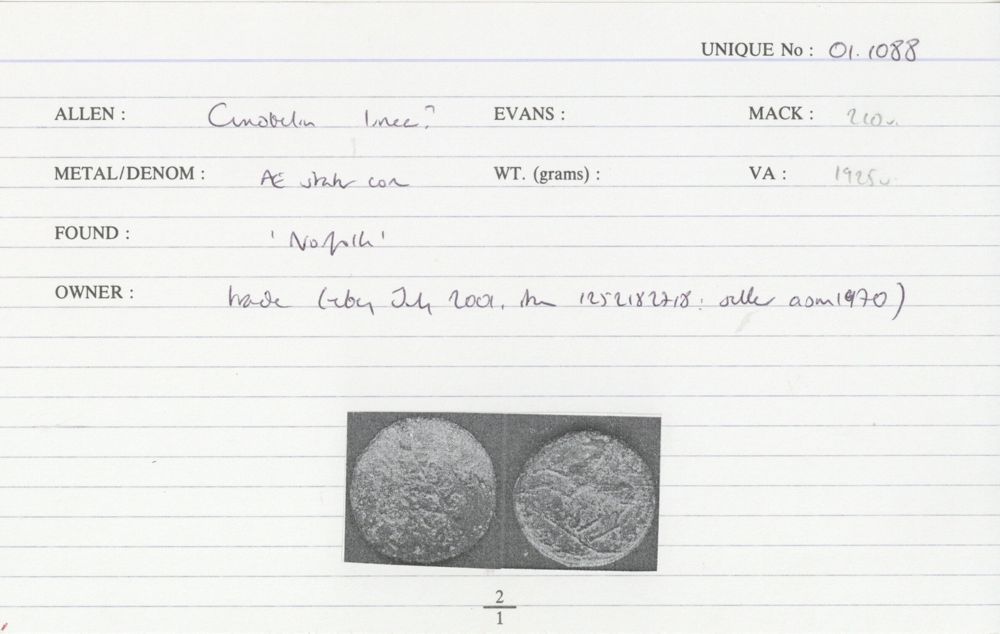 UNIQUE No : 01.1088
ALLEN : Cunobelin linear? EVANS : MACK : 210v.
METAL/DENOM : AE stater core WT. (grams) : VA : 1925v.
FOUND : 'Norfolk'
OWNER : trade (eBay July 2001, item 1252182718: seller aom1970)
2
1